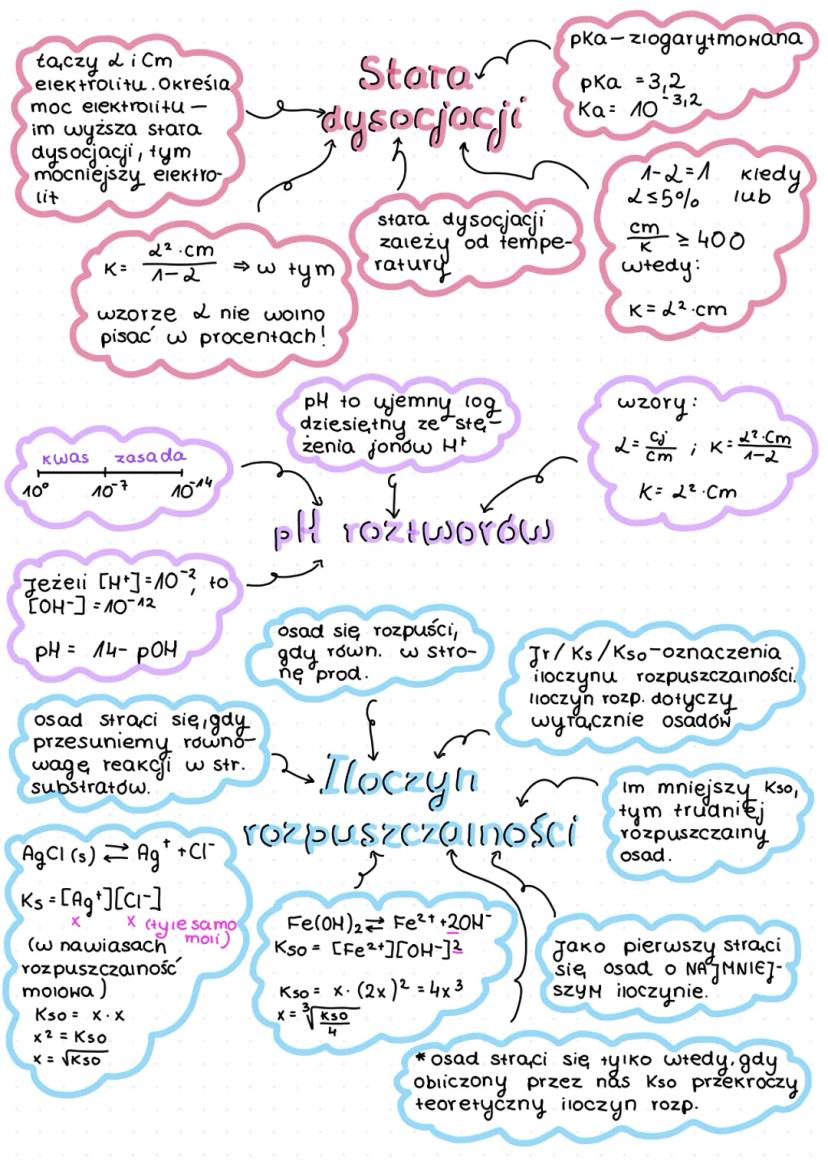 Stała
dysocjacji
łączy α i Cm
elektrolitu. Określa
moc elektrolitu –
im wyższa stała
dysocjacji, tym
mocniejszy elektro-
lit
pKa – zlogarytmowana
pKa = 3,2
Ka = 10^-3,2
K = α²·cm / 1-α ⇒ w tym
wzorze α nie wolno
pisać w procentach!
stała dysocjacji
zależy od tempe-
ratury
1-α=1 kiedy
α≤5% lub
cm/K ≥ 400
wtedy:
K = α²·cm
pH roztworów
kwas zasada
10⁰ 10⁻⁷ 10⁻¹⁴
pH to ujemny log
dziesiętny ze stę-
żenia jonów H⁺
wzory:
α = cj/cm ; K = α²·Cm / 1-α
K = α²·Cm
Jeżeli [H⁺]=10⁻², to
[OH⁻] = 10⁻¹²
pH = 14 - pOH
Iloczyn
rozpuszczalności
osad się rozpuści,
gdy równ. w stro-
nę prod.
Ir / Ks / Kso – oznaczenia
iloczynu rozpuszczalności.
iloczyn rozp. dotyczy
wyłącznie osadów
osad strąci się, gdy
przesuniemy równo-
wagę reakcji w str.
substratów.
Im mniejszy Kso,
tym trudniej
rozpuszczalny
osad.
AgCl (s) ⇄ Ag⁺ + Cl⁻
Ks = [Ag⁺][Cl⁻]
x x (tyle samo
moli)
(w nawiasach
rozpuszczalność
molowa)
Kso = x · x
x² = Kso
x = √Kso
Fe(OH)₂ ⇄ Fe²⁺ + 2OH⁻
Kso = [Fe²⁺][OH⁻]²
Kso = x · (2x)² = 4x³
x = ³√(Kso/4)
Jako pierwszy strąci
się osad o NAJMNIEJ-
SZYM iloczynie.
* osad strąci się tylko wtedy, gdy
obliczony przez nas Kso przekroczy
teoretyczny iloczyn rozp.